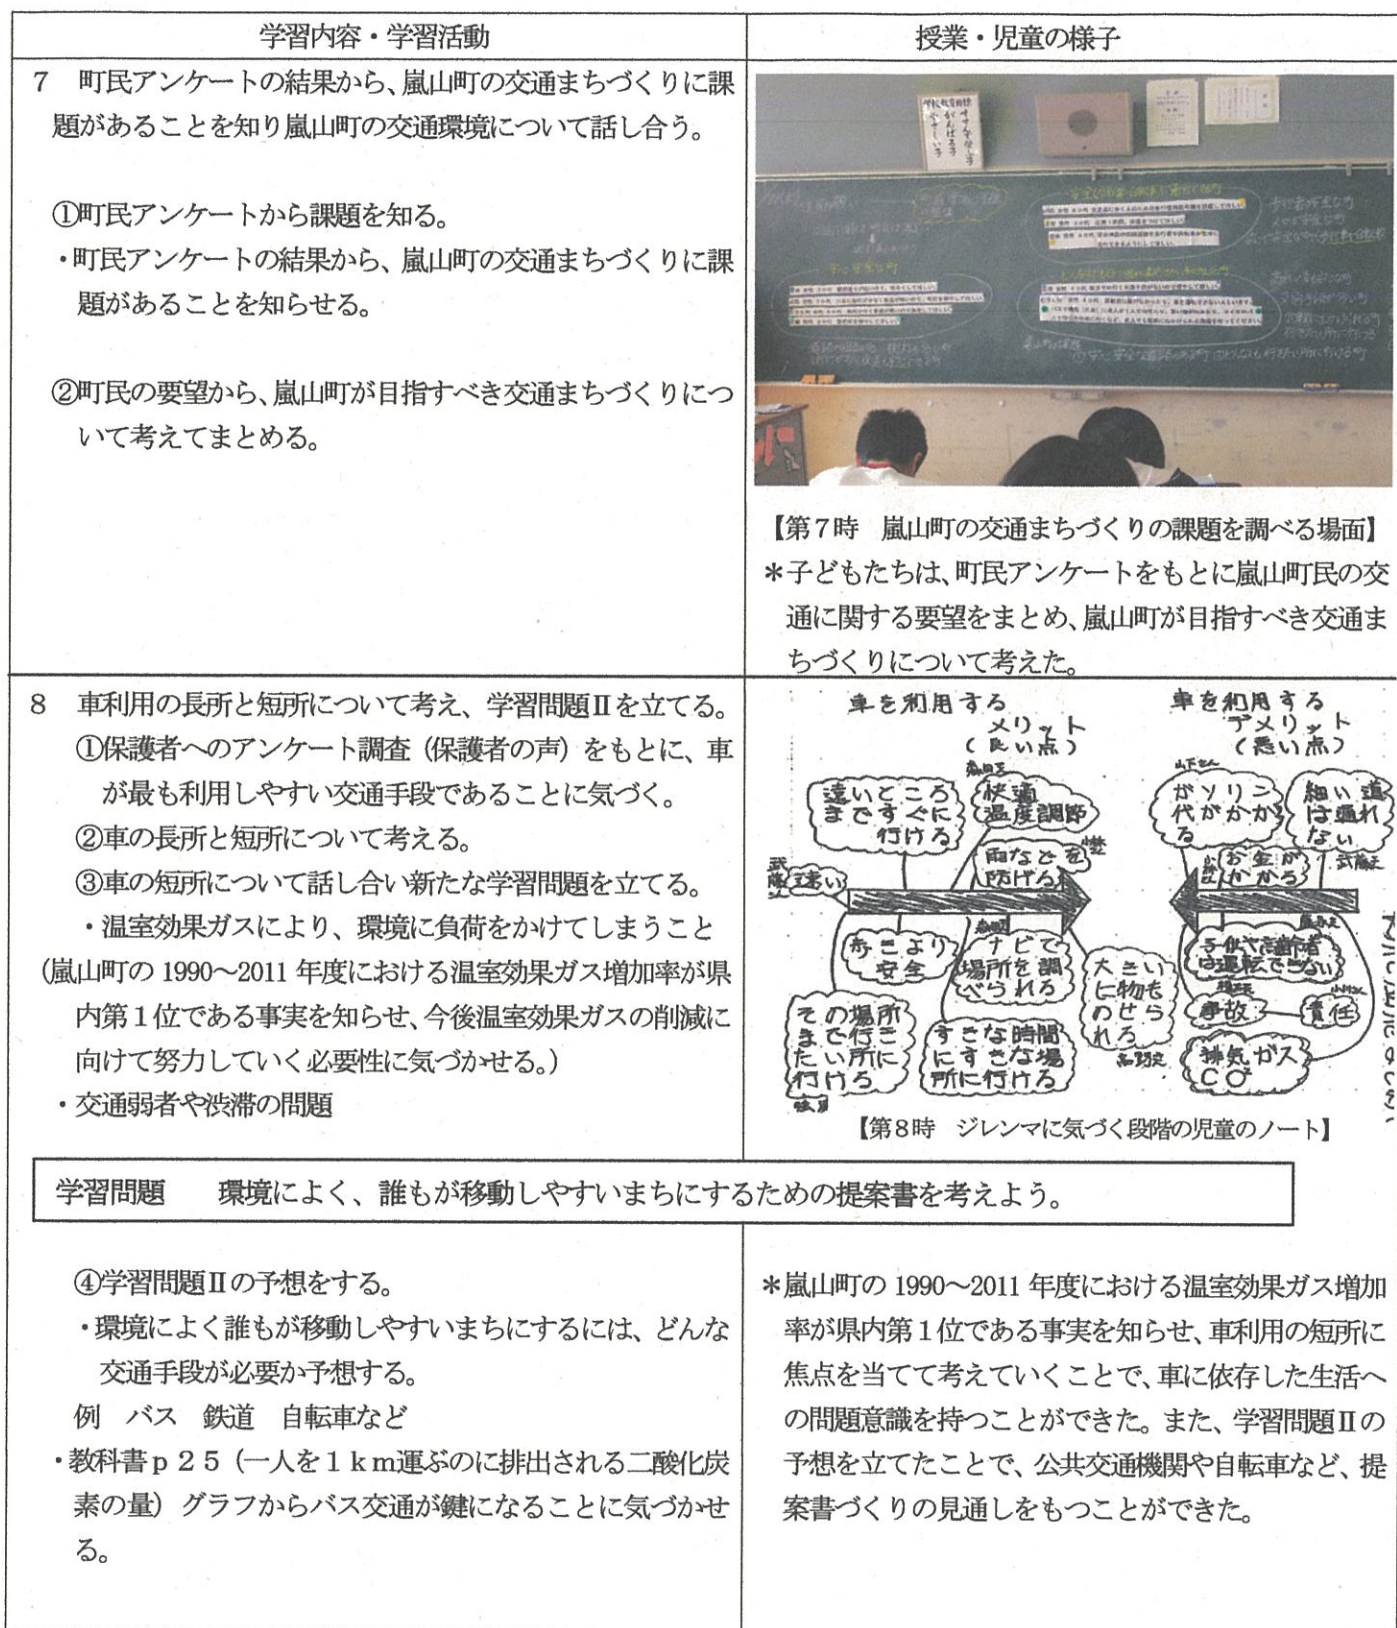 学習内容・学習活動
授業・児童の様子
7　町民アンケートの結果から、嵐山町の交通まちづくりに課
題があることを知り嵐山町の交通環境について話し合う。
①町民アンケートから課題を知る。
・町民アンケートの結果から、嵐山町の交通まちづくりに課
題があることを知らせる。
②町民の要望から、嵐山町が目指すべき交通まちづくりにつ
いて考えてまとめる。
【第7時　嵐山町の交通まちづくりの課題を調べる場面】
＊子どもたちは、町民アンケートをもとに嵐山町民の交
通に関する要望をまとめ、嵐山町が目指すべき交通ま
ちづくりについて考えた。
8　車利用の長所と短所について考え、学習問題Ⅱを立てる。
①保護者へのアンケート調査（保護者の声）をもとに、車
が最も利用しやすい交通手段であることに気づく。
②車の長所と短所について考える。
③車の短所について話し合い新たな学習問題を立てる。
・温室効果ガスにより、環境に負荷をかけてしまうこと
（嵐山町の 1990～2011 年度における温室効果ガス増加率が県
内第１位である事実を知らせ、今後温室効果ガスの削減に
向けて努力していく必要性に気づかせる。）
・交通弱者や渋滞の問題
車を利用する
メリット
（良い点）
遠いところ
まですぐに
行ける
快適
温度調節
雨などを
防げる
速い
歩きより
安全
ナビで
場所を調
べられる
大きい
に物も
のせら
れる
その場所
まで行き
たい所に
行ける
すきな時間
にすきな場
所に行ける
車を利用する
デメリット
（悪い点）
山下さん
ガソリン
代がかか
る
細い道
は通れ
ない
お金が
かかる
子供や高齢者
は運転できない
事故
責任
排気ガス
CO²
【第8時　ジレンマに気づく段階の児童のノート】
学習問題　環境によく、誰もが移動しやすいまちにするための提案書を考えよう。
④学習問題Ⅱの予想をする。
・環境によく誰もが移動しやすいまちにするには、どんな
交通手段が必要か予想する。
例　バス　鉄道　自転車など
・教科書ｐ２５（一人を１ｋｍ運ぶのに排出される二酸化炭
素の量）グラフからバス交通が鍵になることに気づかせ
る。
＊嵐山町の 1990～2011 年度における温室効果ガス増加
率が県内第１位である事実を知らせ、車利用の短所に
焦点を当てて考えていくことで、車に依存した生活へ
の問題意識を持つことができた。また、学習問題Ⅱの
予想を立てたことで、公共交通機関や自転車など、提
案書づくりの見通しをもつことができた。